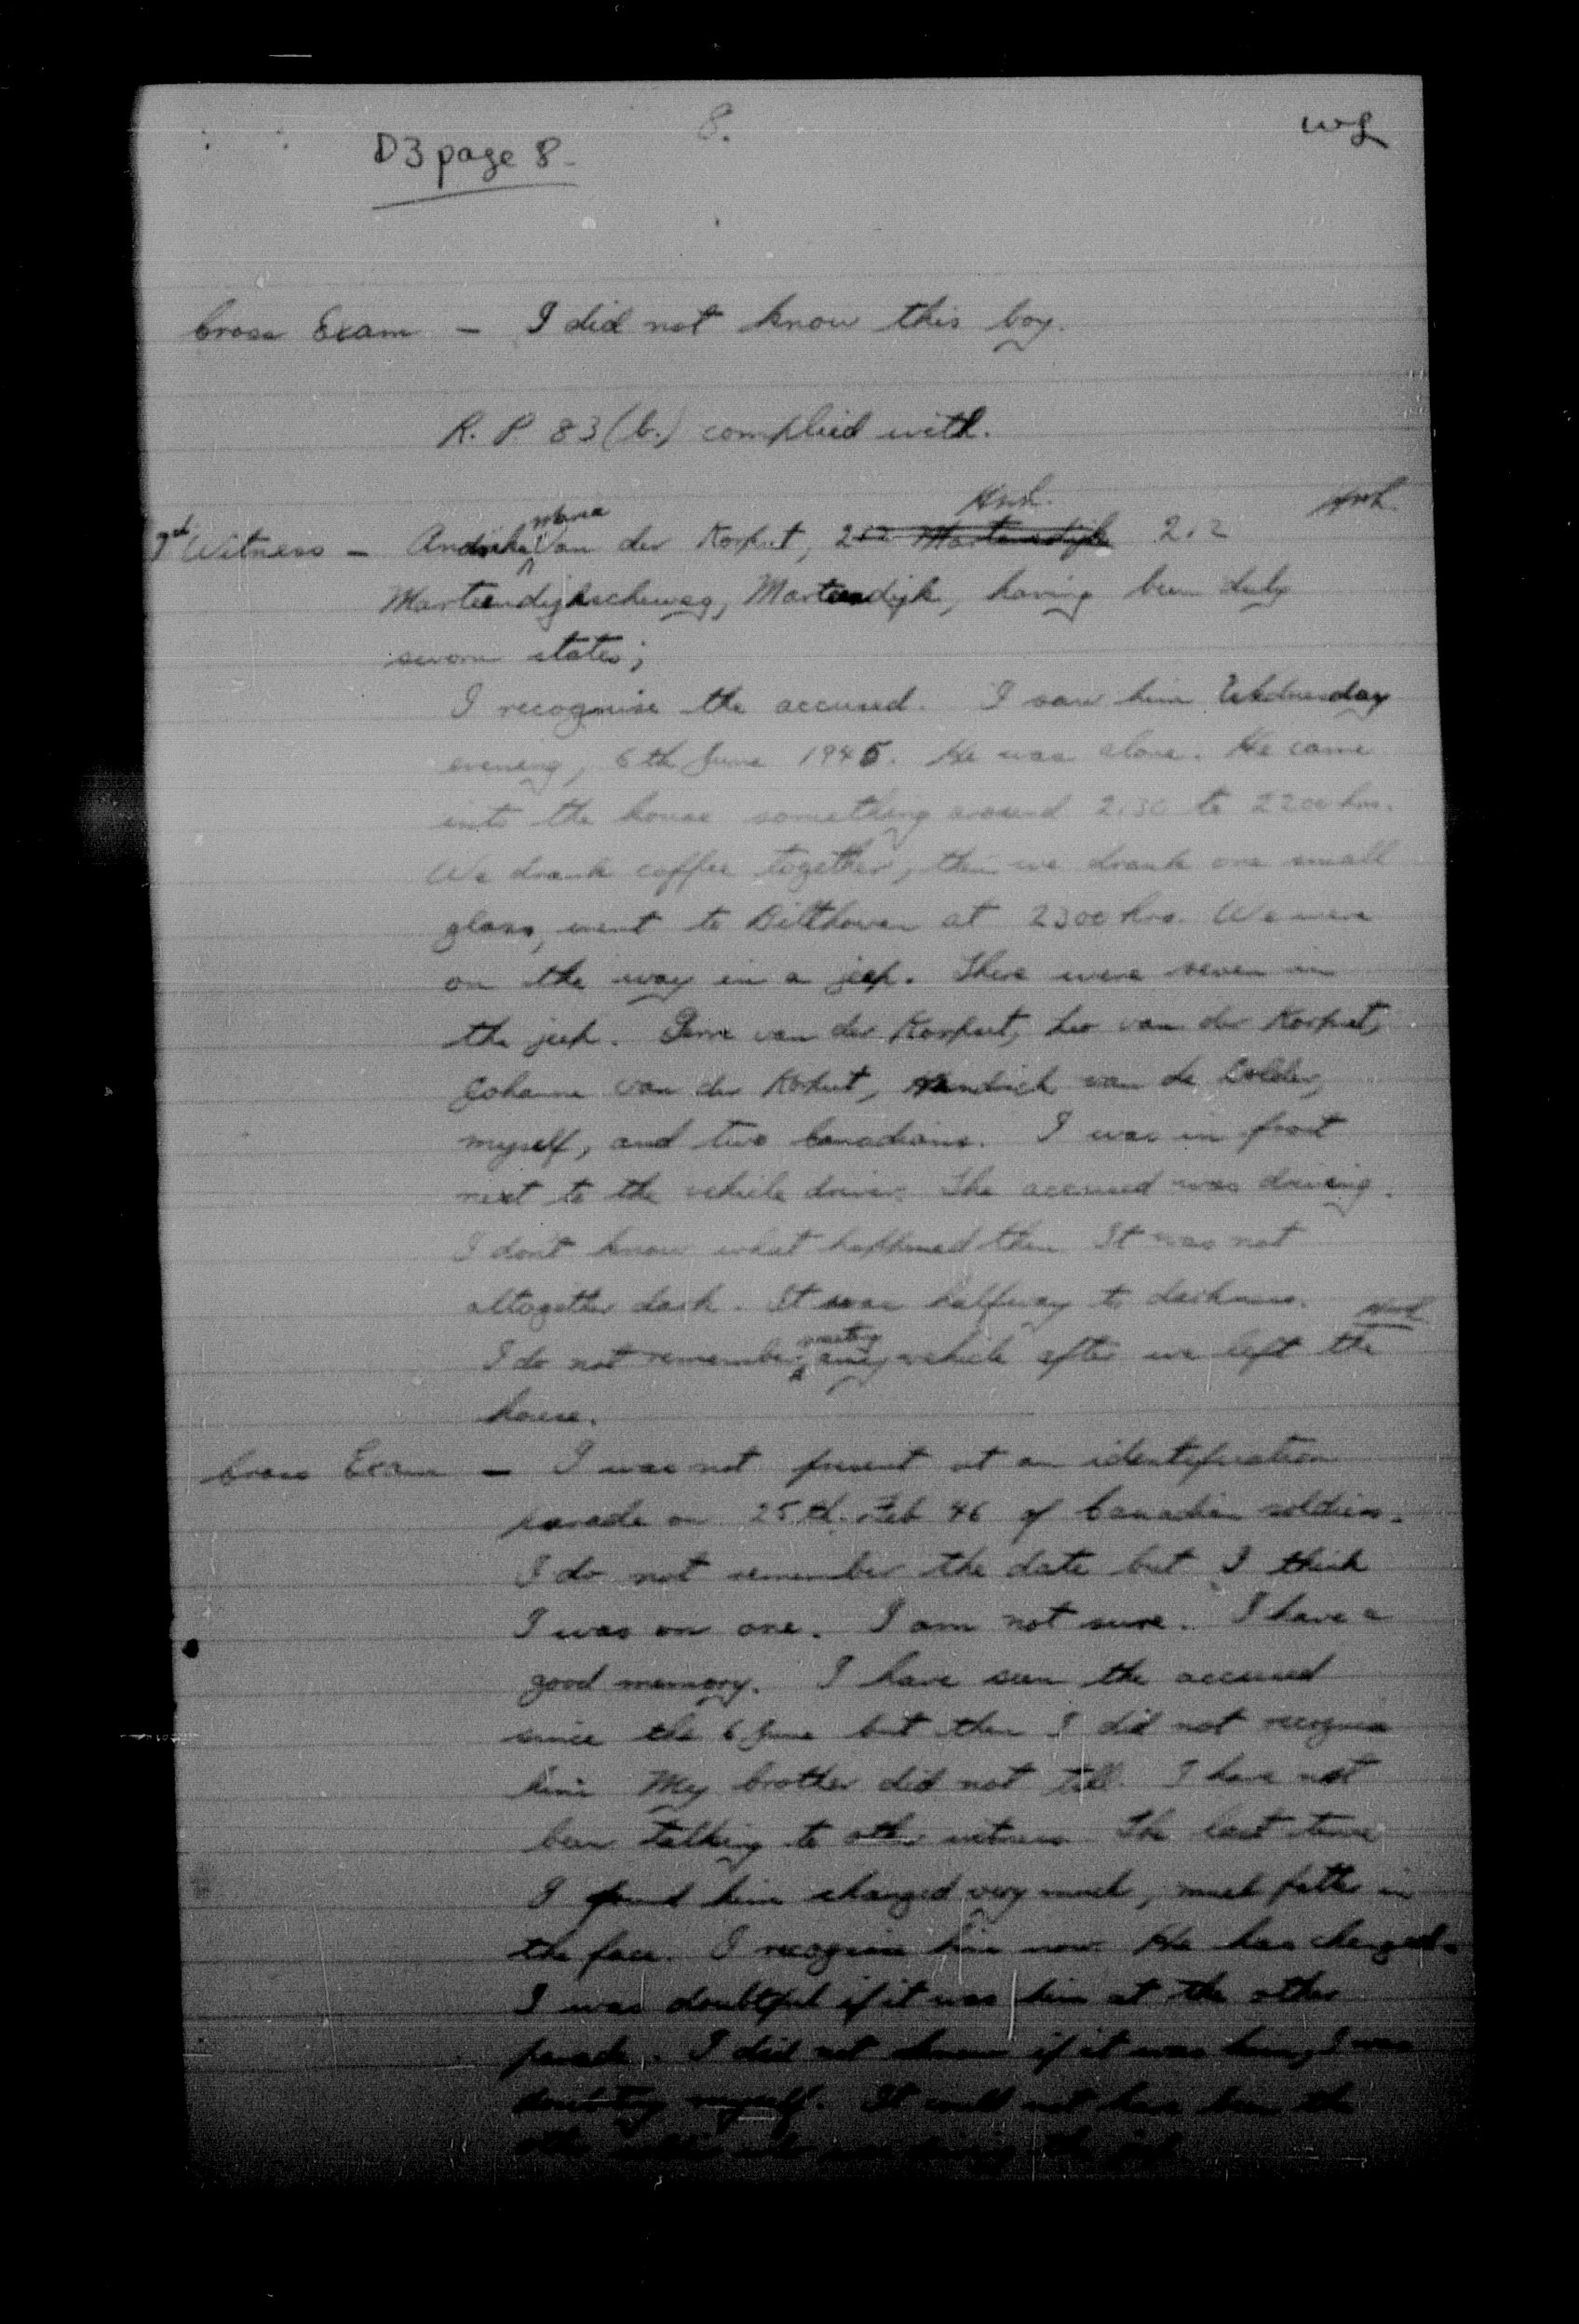 8.
wg
D3 page 8.
Cross Exam - I did not know this boy.
R.P. 83 (b.) complied with.
Witness - Maria van der Korput, 212
Martensdijk, having been duly
sworn states;
I recognise the accused. I saw him Wednesday
evening, 6th June 1945. He was alone. He came
into the house something around to 2200 hrs.
We drank coffee together, then we drank one small
glass, went to Bilthoven at 2300 hrs. We were
on the way in a jeep. There were seven in
the jeep. van der Korput, Leo van der Korput,
Johanna van der Korput, van de
myself, and two Canadians. I was in front
next to the vehicle driver. The accused was driving.
I don't know what happened then. It was not
altogether dark. It was halfway to darkness.
I do not remember meeting any vehicle after we left the
house.
Cross Exam - I was not present at an identification
parade on 25th Feb 46 of Canadian soldiers.
I do not remember the date but I think
I was on one. I am not sure. I have a
good memory. I have seen the accused
since the 6 June but then I did not recognise
him. My brother did not tell. I have not
been talking to other witness. The last time
I found him changed very much, much fatter in
the face. I recognise him now. He has changed.
I was doubtful if it was him at the other
parade. I did not know if it was him, I was
doubting myself. It could not have been the
other soldier who was driving the jeep